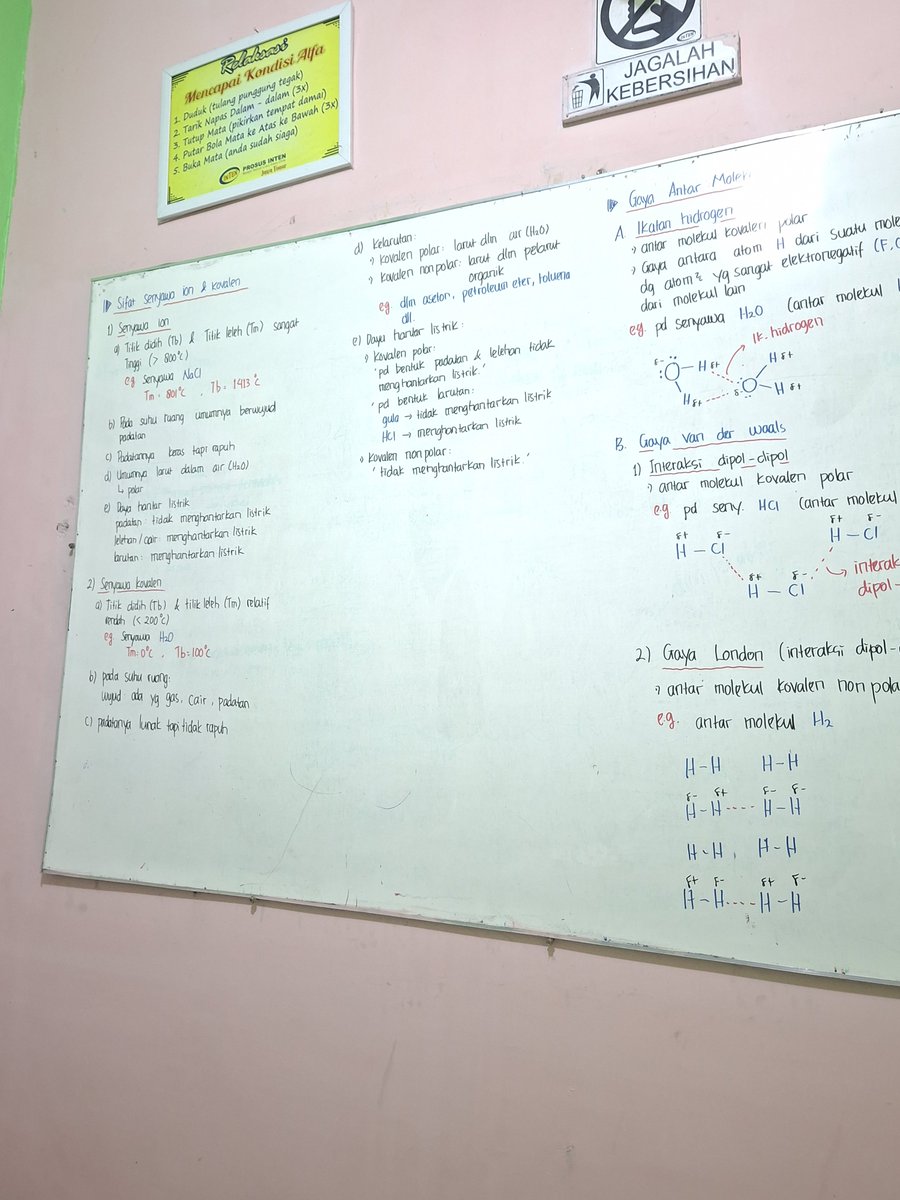 Relaksasi
Mencapai Kondisi Alfa
1. Duduk (tulang punggung tegak)
2. Tarik Napas Dalam - dalam (3x)
3. Tutup Mata (pikirkan tempat damai)
4. Putar Bola Mata ke Atas ke Bawah (3x)
5. Buka Mata (anda sudah siaga)
INTEN PROSUS INTEN
INTEN
JAGALAH
KEBERSIHAN
Sifat senyawa ion & kovalen
1) Senyawa ion
a) Titik didih (Tb) & Titik leleh (Tm) sangat
Tinggi (> 800°C)
eg Senyawa NaCl
Tm = 801°C , Tb = 1413°C
b) Pada suhu ruang umumnya berwujud
padatan
c) Padatannya keras tapi rapuh
d) Umumnya larut dalam air (H₂O)
↳ polar
e) Daya hantar listrik
padatan : tidak menghantarkan listrik
lelehan / cair : menghantarkan listrik
larutan : menghantarkan listrik
2) Senyawa kovalen
a) Titik didih (Tb) & titik leleh (Tm) relatif
rendah (< 200°C)
eg. Senyawa H₂O
Tm = 0°C , Tb = 100°C
b) pada suhu ruang:
wujud ada yg gas, cair, padatan
c) padatanya lunak tapi tidak rapuh
d) Kelarutan :
› kovalen polar : larut dlm air (H₂O)
› kovalen nonpolar : larut dlm pelarut
organik
eg. dlm aseton, petroleum eter, toluena
dll.
e) Daya hantar listrik :
› Kovalen polar :
' pd bentuk padatan & lelehan tidak
menghantarkan listrik.'
' pd bentuk larutan :
gula → tidak menghantarkan listrik
HCl → menghantarkan listrik
› Kovalen nonpolar :
' tidak menghantarkan listrik.'
Gaya Antar Molek
A. Ikatan hidrogen
› antar molekul kovalen polar
› Gaya antara atom H dari suatu mole
dg atom² yg sangat elektronegatif (F,
dari molekul lain
eg. pd senyawa H₂O (antar molekul
Ik. hidrogen
δ- O - H δ+
H δ+
δ- O - H δ+
H δ+
B. Gaya van der waals
1) Interaksi dipol-dipol
› antar molekul kovalen polar
eg pd seny. HCl (antar molekul
δ+ δ- δ+ δ-
H - Cl H - Cl
δ+ δ-
H - Cl
interak
dipol-
2) Gaya London (interaksi dipol-
› antar molekul kovalen non pola
eg. antar molekul H₂
H-H H-H
δ- δ+ δ- δ-
H-H ---- H-H
H-H , H-H
δ+ δ- δ+ δ-
H-H ---- H-H